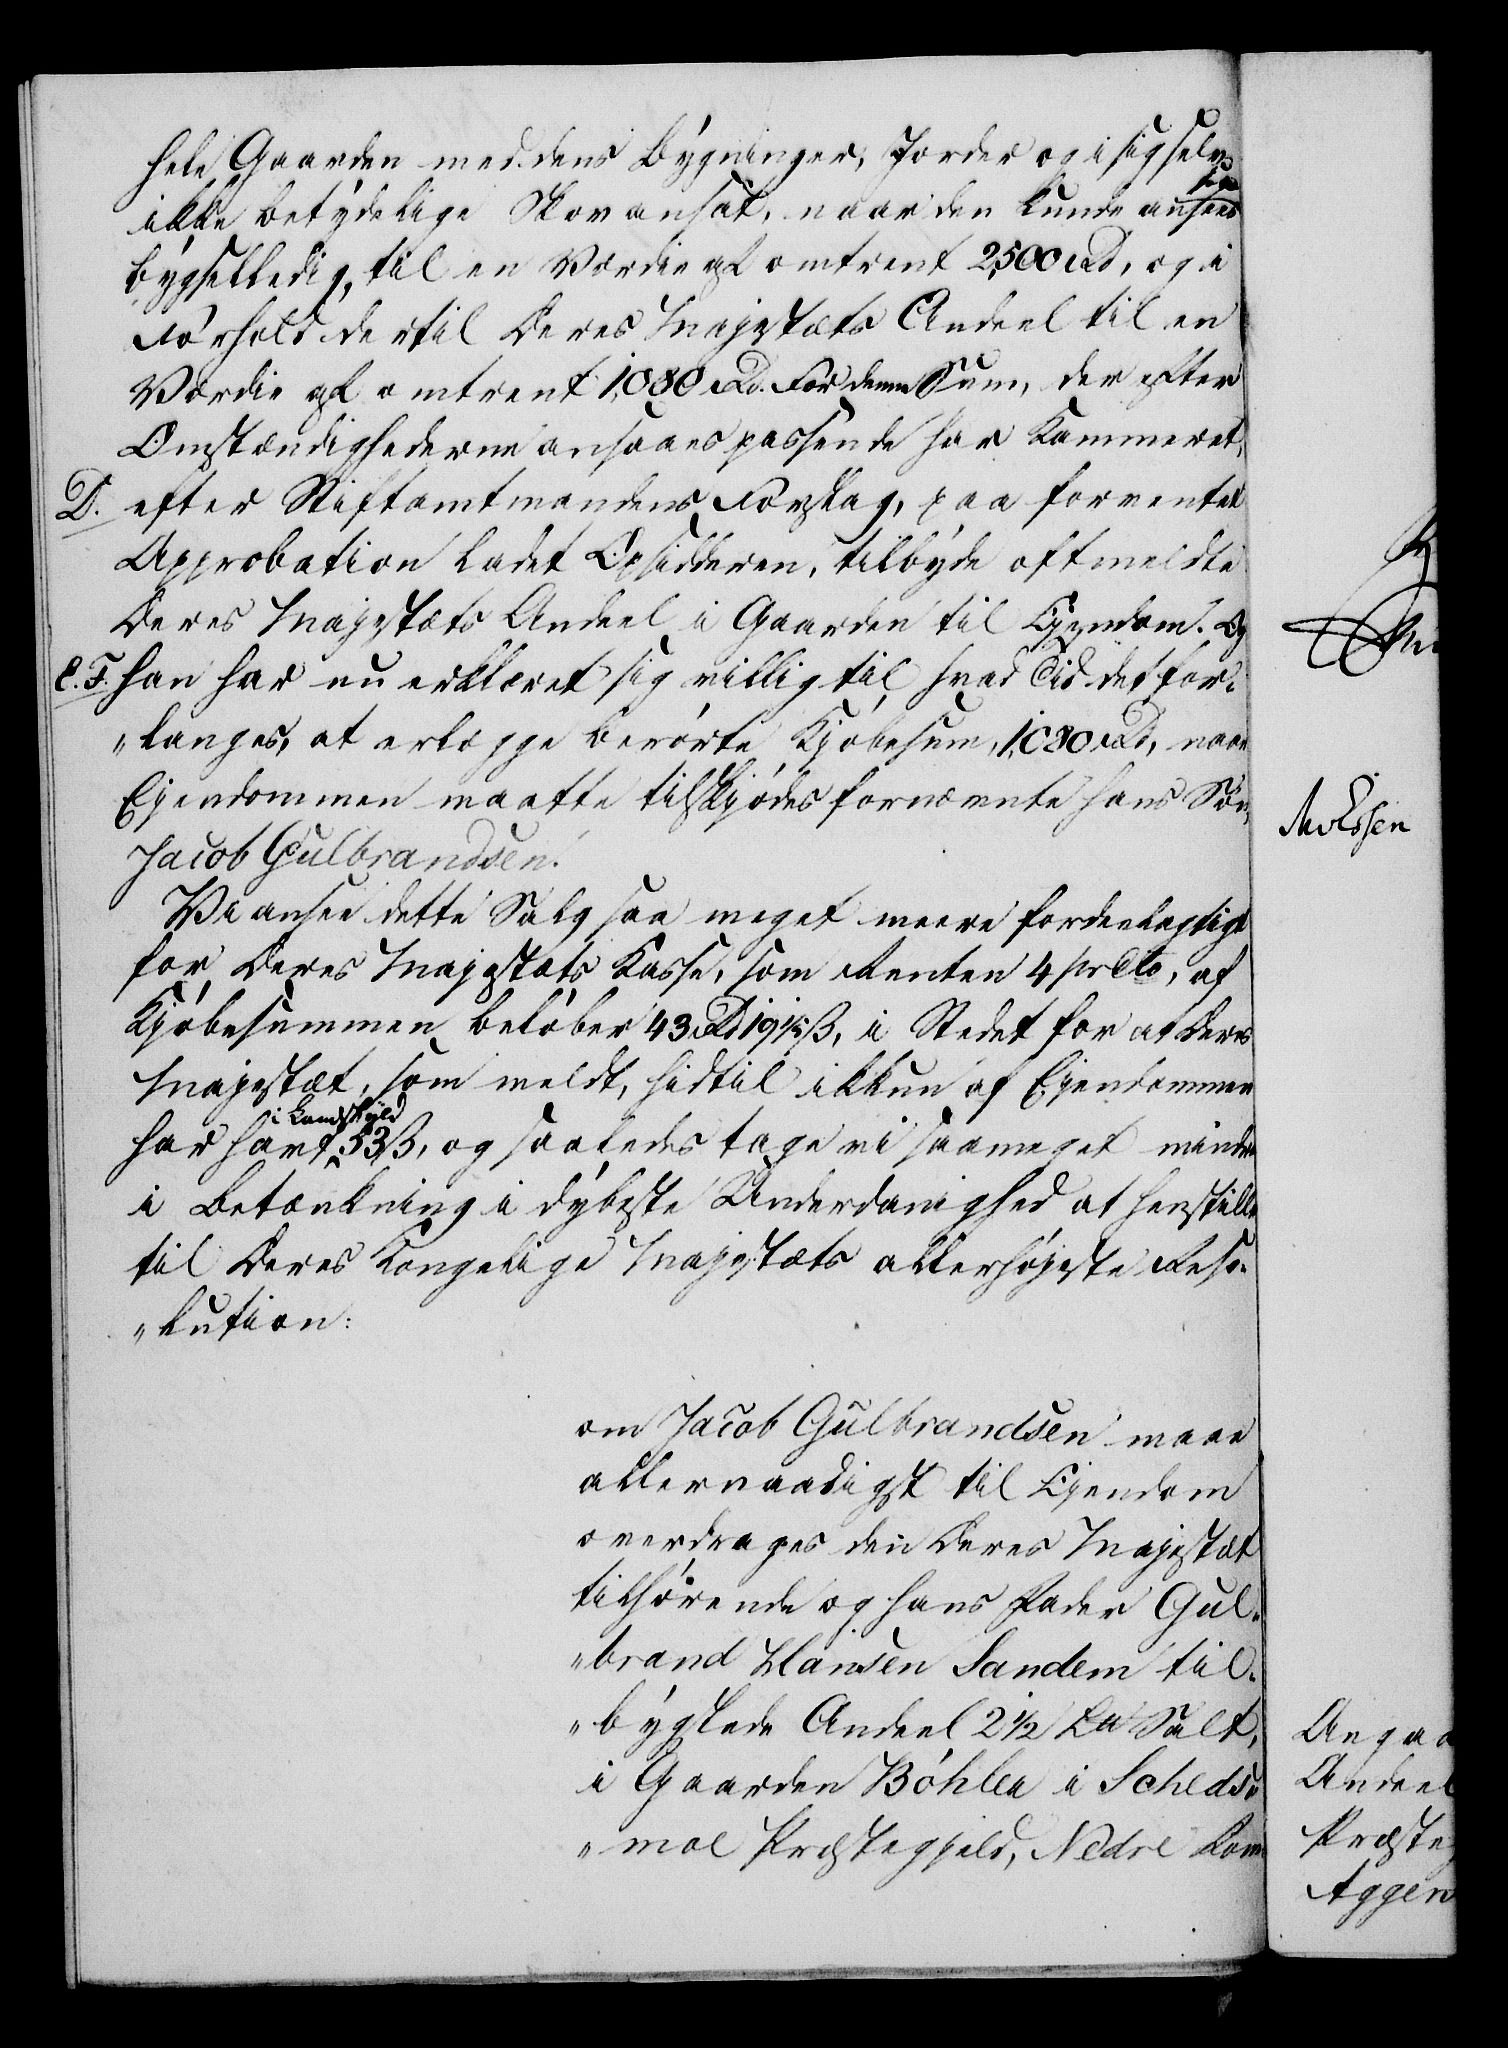 hele Gaarden med dens Bygninger, Jorder og i sig selv
ikke betydelige Skov ansat, naar den kunde ansees som
bygselledig, til en Værdie af omtrent 2500 Rd, og i
Forhold dertil Deres Majestæts Andeel til en
Værdie af omtrent 1,080 Rd. For denne Sum, der efter
Omstændighederne ansaaes passende har Kammeret,
D. efter Stiftamtmandens Forslag, paa forventet
Approbation ladet Opsidderen, tilbyde oftmeldte
Deres Majestæts Andeel i Gaarden til Ejendom. Og
E. F. han har nu erklæret sig villig til, hvad Tid det for-
„langes, at erlægge berørte Kjøbesum, 1,080 Rd, naar
Ejendommen maatte tilskjødes fornævnte hans Søn,
Jacob Gulbrandsen.
Vi ansee dette Salg saa meget meere fordeelagtigt
for Deres Majestæts Kasse, som Renten 4 pr Cto, af
Kjøbesummen beløber 43 Rd 19 1/5 ß, i Stedet for at Deres
Majestæt, som meldt, hidtil ikkun af Ejendommen
har havt i Landskyld 53 ß, og saaledes tage vi saameget mindre
i Betænkning i dybeste Underdanighed at henstille
til Deres Kongelige Majestæts allerhøjeste Reso-
„lution:
om Jacob Gulbrandsen maae
allernaadigst til Ejendom
overdrages den Deres Majestæt
tilhørende og hans Fader Gul-
„brand Hansen Sandem til-
„bygslede Andeel 2 1/2 Ld Salt,
i Gaarden Bøhler i Scheds-
„moe Præstegjeld, Nedre Rom
Angaa
Andeel
Præsteg
Aggers